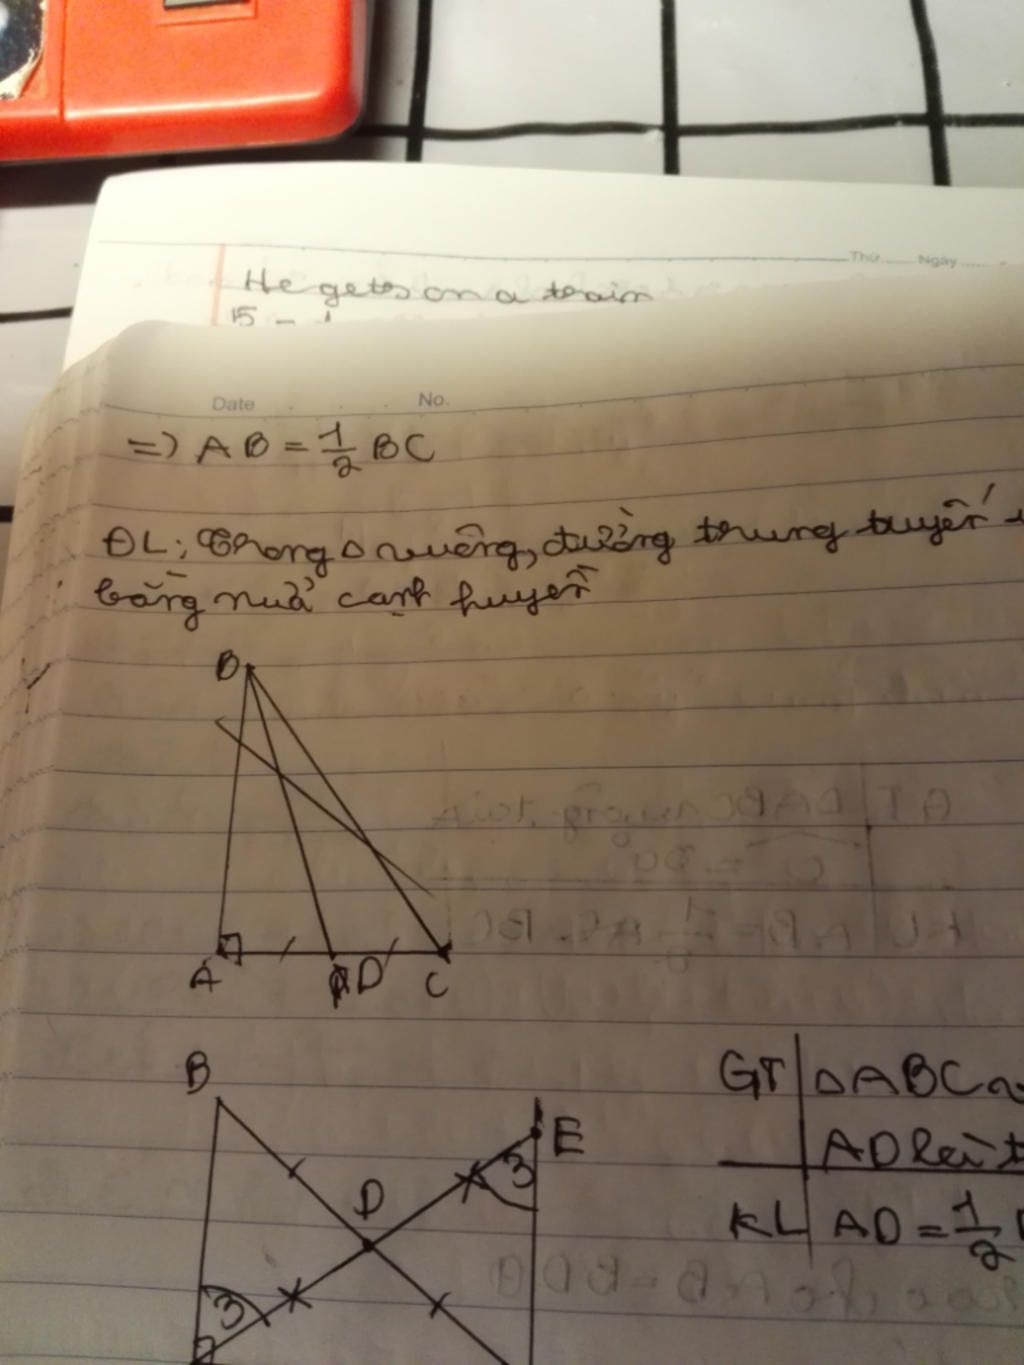 Thứ Ngày
He gets on a train
Date No.
=) AB = 1/2 BC
ĐL: Trong Δ vuông, đường trung tuyến
bằng nửa cạnh huyền
B
A D C
B
E
3
D
3
GT ΔABC
AD là
KL AD = 1/2